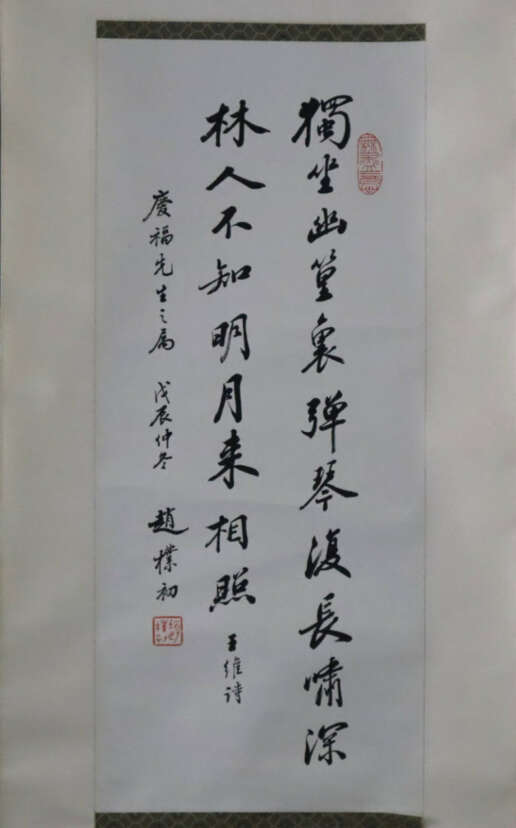 獨坐幽篁裏弹琴復長嘯深
林人不知明月来相照
王維诗
慶福先生之属 戊辰仲冬 趙樸初